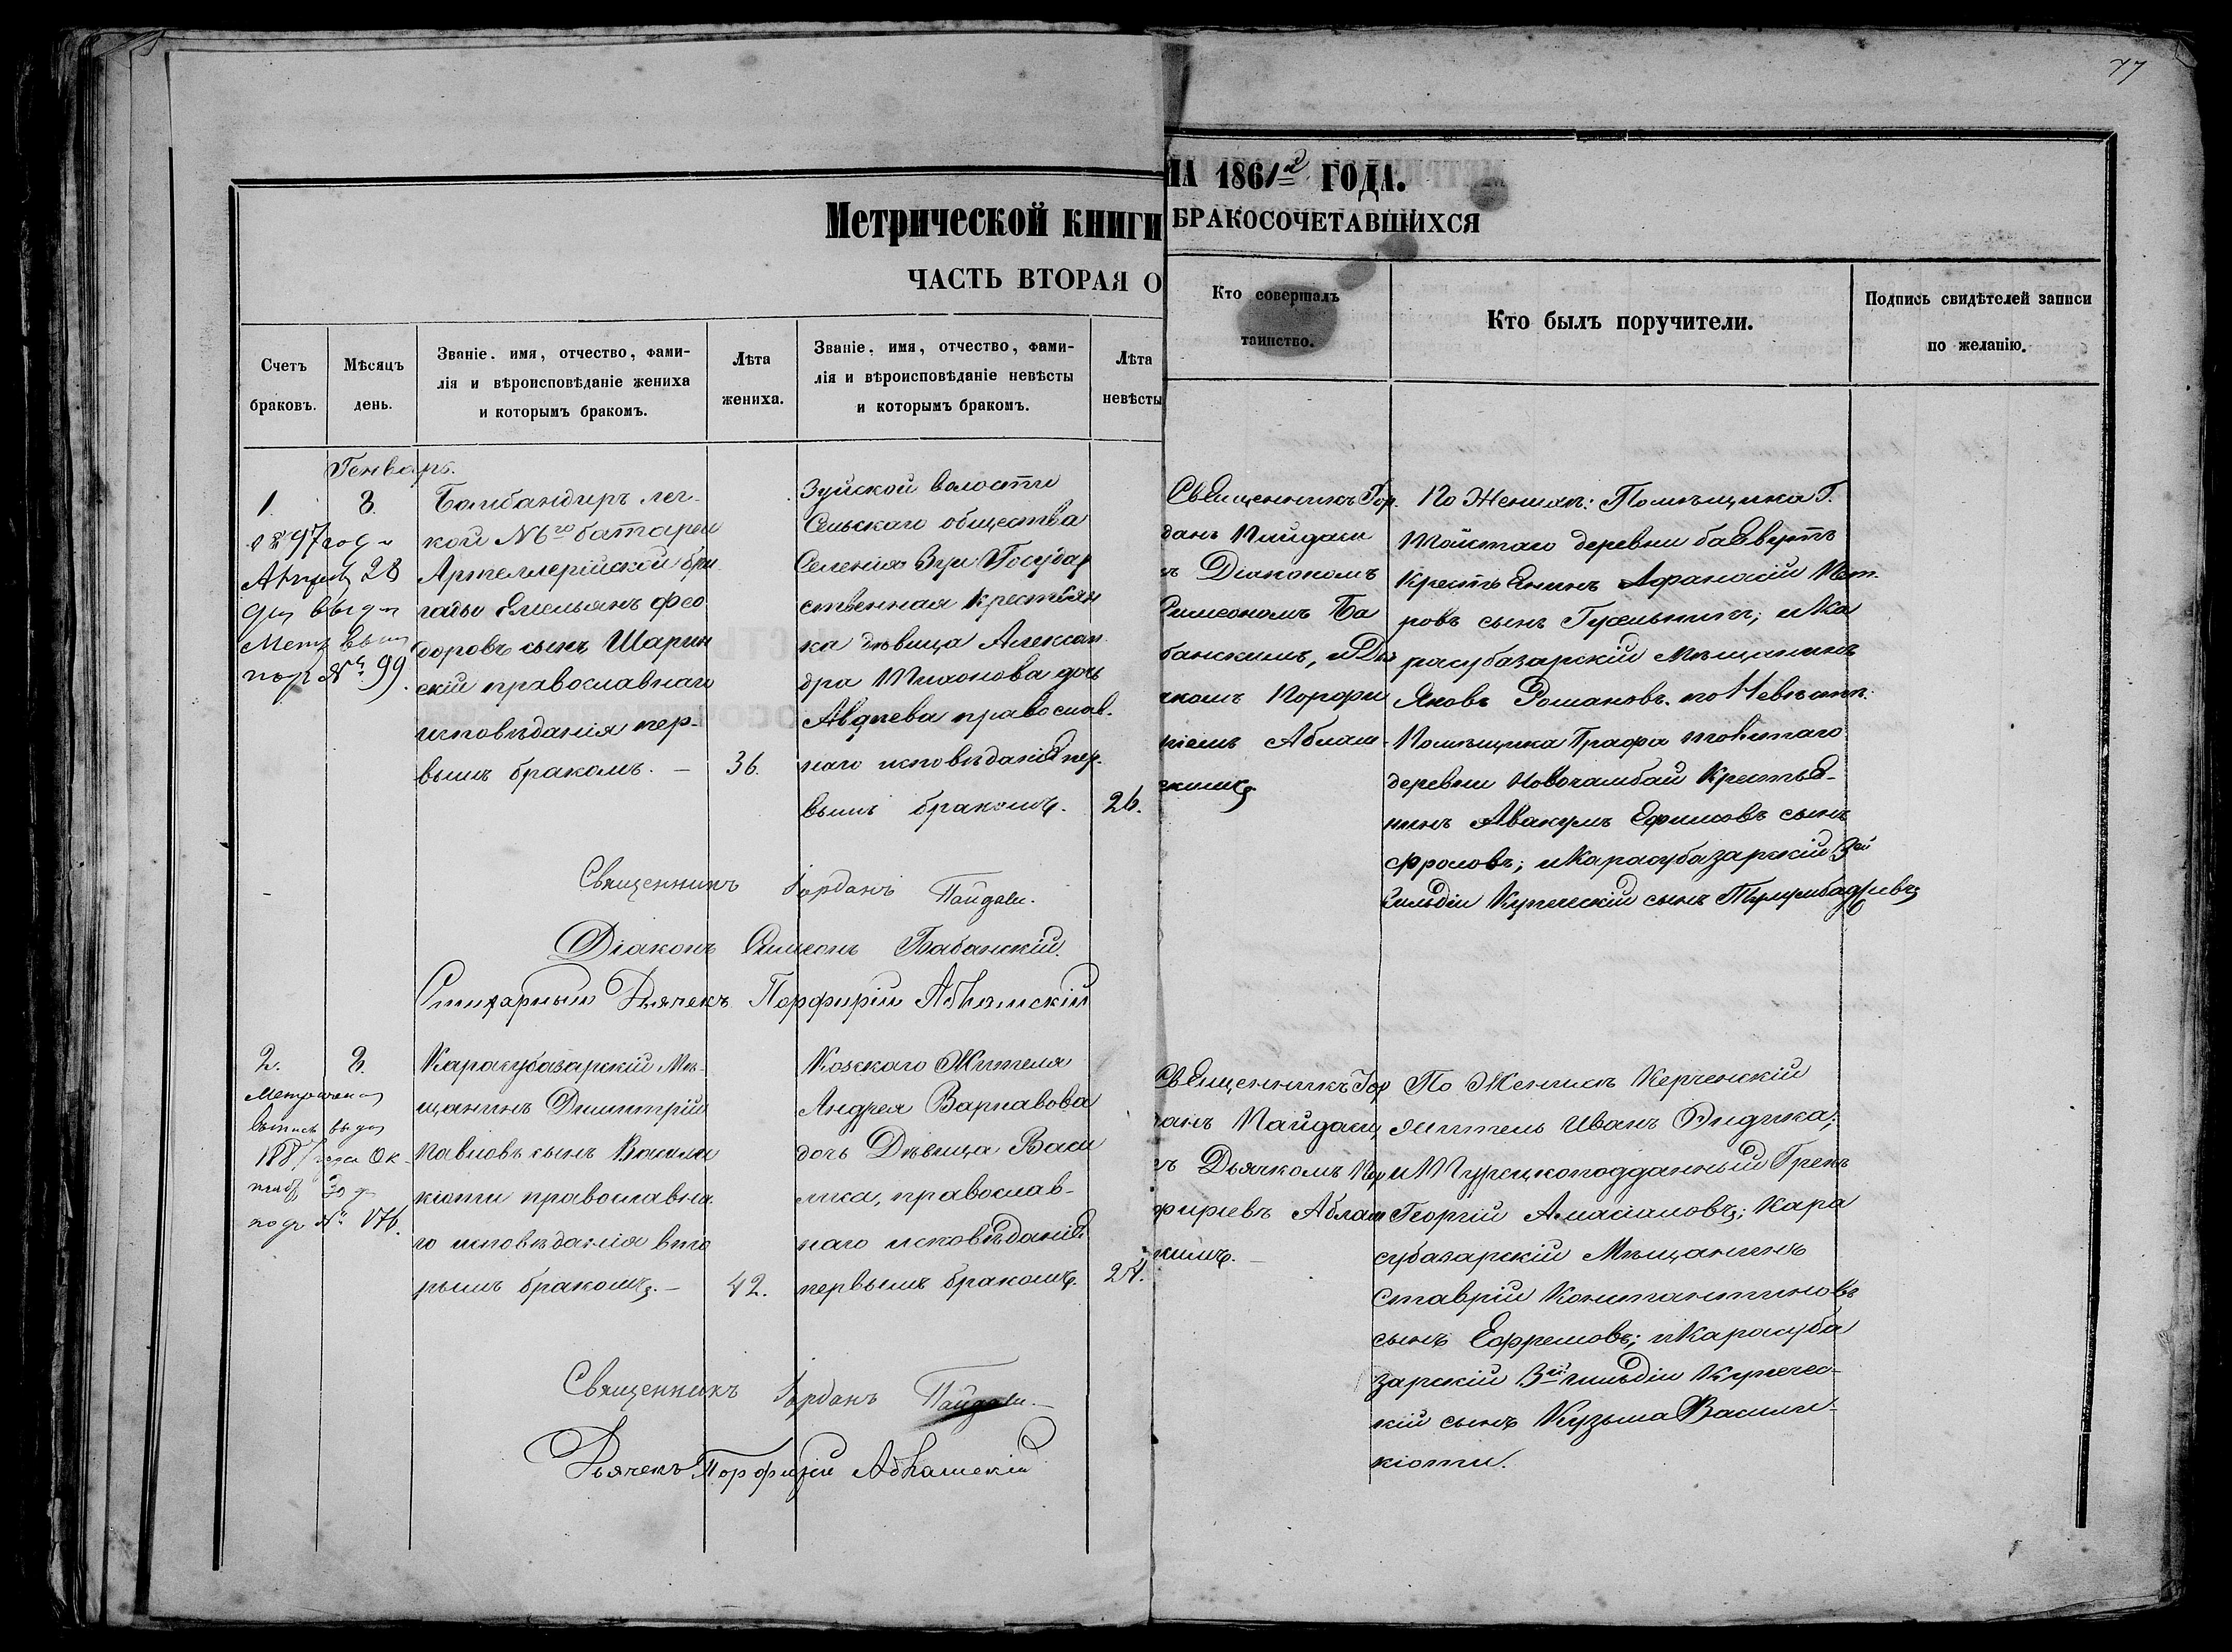 77
Метрической книги
НА 1861го ГОДА.
ЧАСТЬ ВТОРАЯ О
БРАКОСОЧЕТАВШИХСЯ
Счетъ
браковъ.
Мѣсяцъ
день.
Званіе, имя, отчество, фами-
лія и вѣроисповѣданіе жениха
и которымъ бракомъ.
Лѣта
жениха.
Званіе, имя, отчество, фами-
лія и вѣроисповѣданіе невѣсты
и которымъ бракомъ.
Лѣта
невѣсты
Кто совершалъ
таинство.
Кто былъ поручители.
Подпись свидѣтелей записи
по желанію.
Генварь.
1.
8.
1897 года
28
выда
Метр
под № 99.
Бамбандиръ лег-
кой №6го батареи
Артеллерійской бри
гады Емельянъ Фео
доровъ сынъ Шарин
скій православнаго
исповѣданія пер-
вымъ бракомъ. —
36.
Зуйской волости
Сельскаго общества
Селенія Зуи Государ
ственная крестьян
ка дѣвица Алексан
дра Тихонова дочь
Авдѣева православ-
наго исповѣданія пер-
вымъ бракомъ.
26.
Священникъ Іор
данъ Пайдаси
съ Діакономъ
Симеономъ Ба
банскимъ, и Дья
чкомъ Порфи
ріемъ Аблам-
скимъ.
По Женихѣ: Помѣщика Г.
деревни
крестьянинъ Афанасій Пет-
ровъ сынъ и Ка
расубазарскій Мѣщанинъ
Яковъ Романовъ. по Невѣстѣ:
Помѣщика Графа
деревни Крестья-
нинъ Авакумъ Ефимовъ сынъ
Фроловъ; и Карасубазарскій 3ей
гильдіи Купеческій сынъ
Священникъ Іорданъ Пайдаси.
Діаконъ Симеонъ Бабанскій.
Дьячекъ Порфирій Абламскій
2.
8.
Метрическая
выпись выда
188 года Ок-
тябр 30 д
под № 176.
Карасубазарскій Мѣ-
щанинъ Димитрій
Павловъ сынъ Васили
кіоти православна
го исповѣданія вто
рымъ бракомъ. —
42.
Козскаго Жителя
Андрея Варнавова
дочь Дѣвица Васи
лиса, православ-
наго исповѣданія
первымъ бракомъ.
24.
Священникъ Іор
данъ Пайдаси,
съ Дьячкомъ Пор
фиріевъ Аблам
скимъ. —
По Женихѣ Керченскій
житель Иванъ
и Турецкоподданный Грекъ
Георгій Кара
субазарскій Мѣщанинъ
Ставрій Константиновъ
сынъ Ефремовъ; и Карасуба
зарскій 3ей гильдіи Купечес-
кій сынъ Кузьма Васили-
кіоти.
Священникъ Іорданъ Пайдаси. —
Дьячекъ Порфирій Абламскій